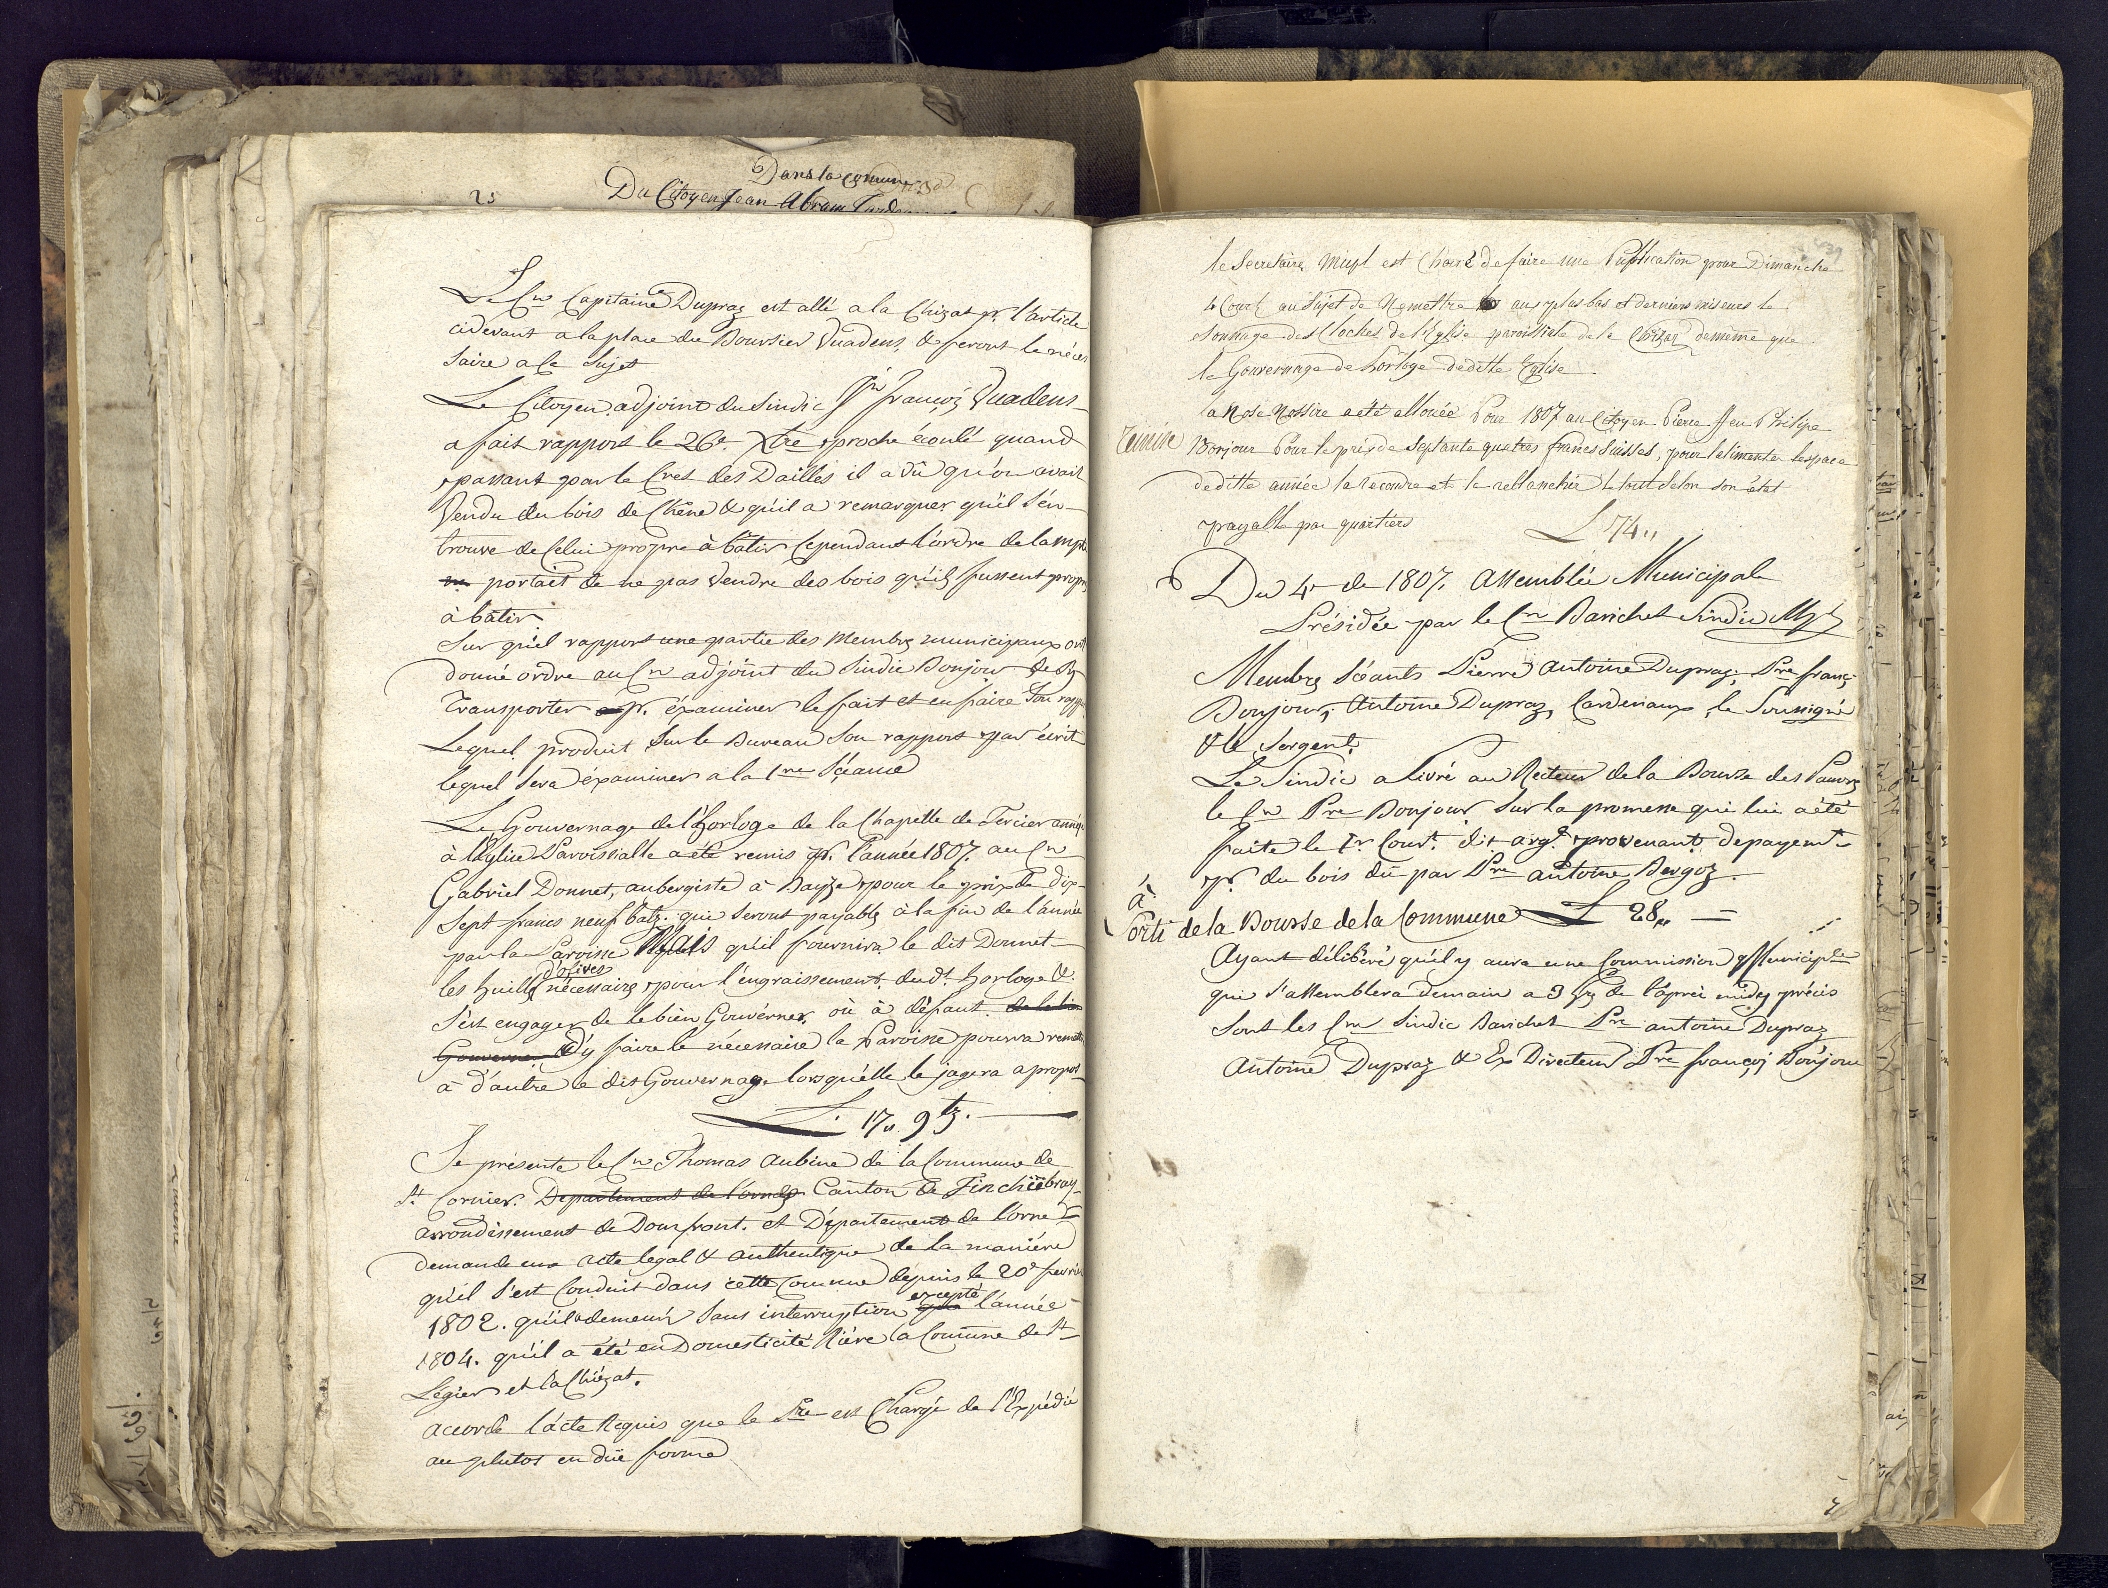 25
Dans la comune
Du Citoyen Jean Abram
Le Cn Capitaine Dupraz est allé a la Chizat pr. l'article
cidevant a la place du Boursier Vuadens & feront le néces
saire a ce Sujet
Le Citoyen adjoint du Sindic Jn françoiz Vuadens
a fait rapport le 26e Xbre proche écoulé quand
passant par le Cret des Dailles il a vû qu'on avait
Vendu du bois de Chêne & qu'il a remarquer qu'il s'en
trouve de Celui propre à bâtir Cependant l'ordre de la mpte
portait de ne pas Vendre des bois qu'ilz fussent propr
à bâtir
Sur qu'el rapport une partie des Membrz municipaux ont
donné ordre au Cn adjoint du Sindic Bonjour de Sy
Transporter pr. éxaminer le fait et en faire Son rapp
Lequel produit Sur le Bureau Son rapport par écrit
lequel Sera éxaminer a la 1re Séance
Le Gouvernage de l'Horloge de la Chapelle de Tercier année
à l'église Paroissialle a été remis pr. l'année 1807. au Cn
Gabriel Donnet, aubergiste à Bayze pour le prix de dix
Sept francs neuf batz. qui Seront payablz à la fin de l'année
par la Paroisse Mais qu'il fournira le dit Donnet
d'olives
les huillz nécessairz pour l'engraissement dudt. horloge &
S'est engager de le bien Gouvérner, où à défaut de le bien
Gouverner D'y faire le nécessaire la Paroisse pourra remett
à d'autre le dit Gouvernage lorsqu'elle le jugera a propos
L. 17,, 9 bz.
Se présente le Cn Thomas Aubine de la Commune de
St Cornier. Département de l'orne Canton de Tinchëbray
arrondissement de Domfront. et Département de l'orne
demande un acte légal & authentique de la maniére
qu'il s'est Conduit dans cette Commune depuis le 20e fevrier
excepté
1802. qu'il a demeuré Sans interruption que l'année
1804. qu'il a été en Domesticité Riére la Comune de St
Légier et la Chiézat.
accordé l'acte Requis que le Sre est Chargé de l'Expédié
au plutot en düe forme
le Secretaire Mupl est Chargé de faire une Publication pour Dimanche
4 Court au Sujet de Remettre aux plus bas et derniers miseurs le
Sonnage des Cloches de l'Eglise paroissiale de la Chiézaz demême que
le Gouvernage de Horloge deditte Eglise
la Nose Nossire a été allouée Pour 1807 au Citoyen Pierre ffeu Philipe
Bonjour Pour le prix de Septante quatres francs Suisses, pour l'alimenter lespace
deditte année la recoudre et la reblanchir le tout Selon son état
payable par quartiers L 74,,
Du 4r de 1807. Assemblée Municipale
Présidée par le Cn Barichet Sindic Mpl
Membrz Séants Pierre Antoine Dupraz, Pre franç
Bonjour, Antoine Dupraz, Cardinaux, le Soussigné
& le Sergent.
Le Sindic a livré au Recteur de la Bourse des Pauvrz
le Cn Pre Bonjour Sur la promesse qui lui a été
faite le 1r Court. dit argt provenant de payemt
pr. du bois dû par Pre antoine Bergoz.
à
Sorti de la Bourse de la Commune L 28,, —
Ayant délibéré qu'il y aura une Commission Municiple
qui S'assemblera demain a 3 hz de l'après midy précis
Sont les Cns Sindic Barichet Pre antoine Dupraz
Antoine Dupraz & Ex Directeur Pre françoi Bonjour